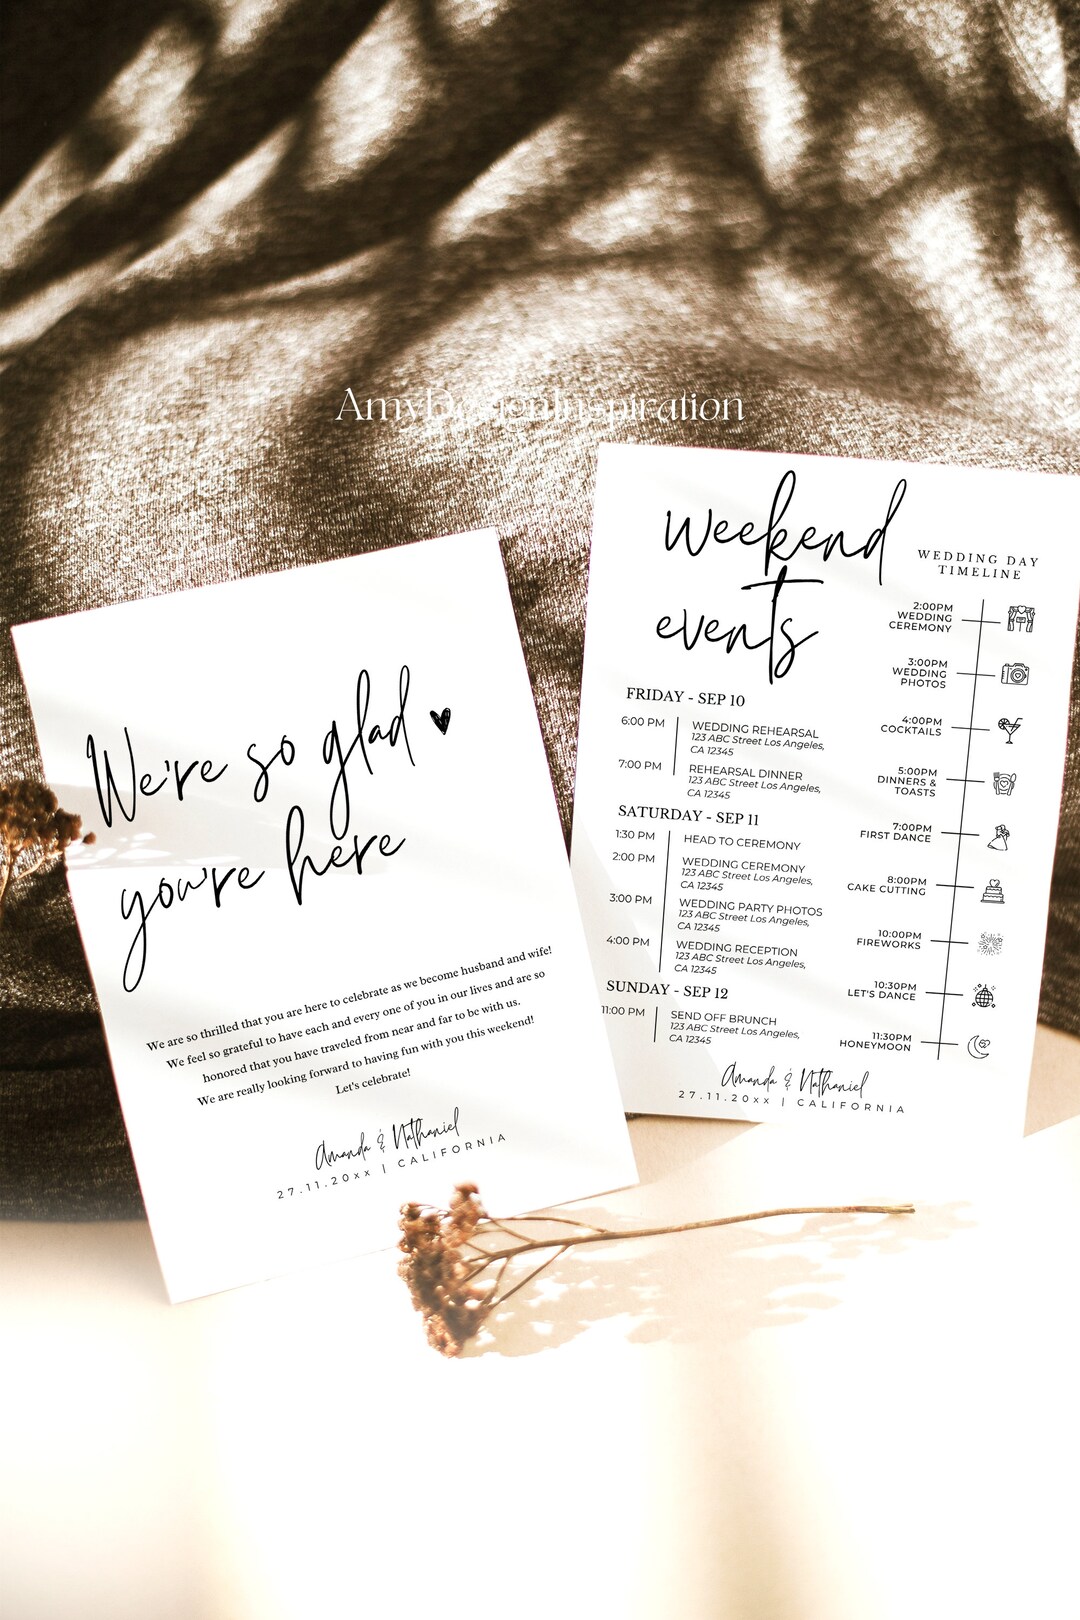 AmyDesignInspiration
We're so glad
you're here
We are so thrilled that you are here to celebrate as we become husband and wife!
We feel so grateful to have each and every one of you in our lives and are so
honored that you have traveled from near and far to be with us.
We are really looking forward to having fun with you this weekend!
Let's celebrate!
Amanda & Nathaniel
27.11.20xx | CALIFORNIA
weekend
events
FRIDAY - SEP 10
6:00 PM WEDDING REHEARSAL
123 ABC Street Los Angeles,
CA 12345
7:00 PM REHEARSAL DINNER
123 ABC Street Los Angeles,
CA 12345
SATURDAY - SEP 11
1:30 PM HEAD TO CEREMONY
2:00 PM WEDDING CEREMONY
123 ABC Street Los Angeles,
CA 12345
3:00 PM WEDDING PARTY PHOTOS
123 ABC Street Los Angeles,
CA 12345
4:00 PM WEDDING RECEPTION
123 ABC Street Los Angeles,
CA 12345
SUNDAY - SEP 12
11:00 PM SEND OFF BRUNCH
123 ABC Street Los Angeles,
CA 12345
WEDDING DAY
TIMELINE
2:00PM
WEDDING
CEREMONY
3:00PM
WEDDING
PHOTOS
4:00PM
COCKTAILS
5:00PM
DINNERS &
TOASTS
7:00PM
FIRST DANCE
8:00PM
CAKE CUTTING
10:00PM
FIREWORKS
10:30PM
LET'S DANCE
11:30PM
HONEYMOON
Amanda & Nathaniel
27.11.20xx | CALIFORNIA